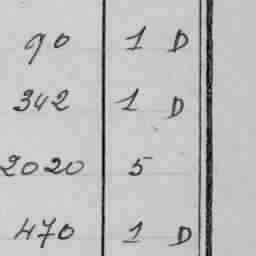 90 1 D
342 1 D
2020 5
470 1 D